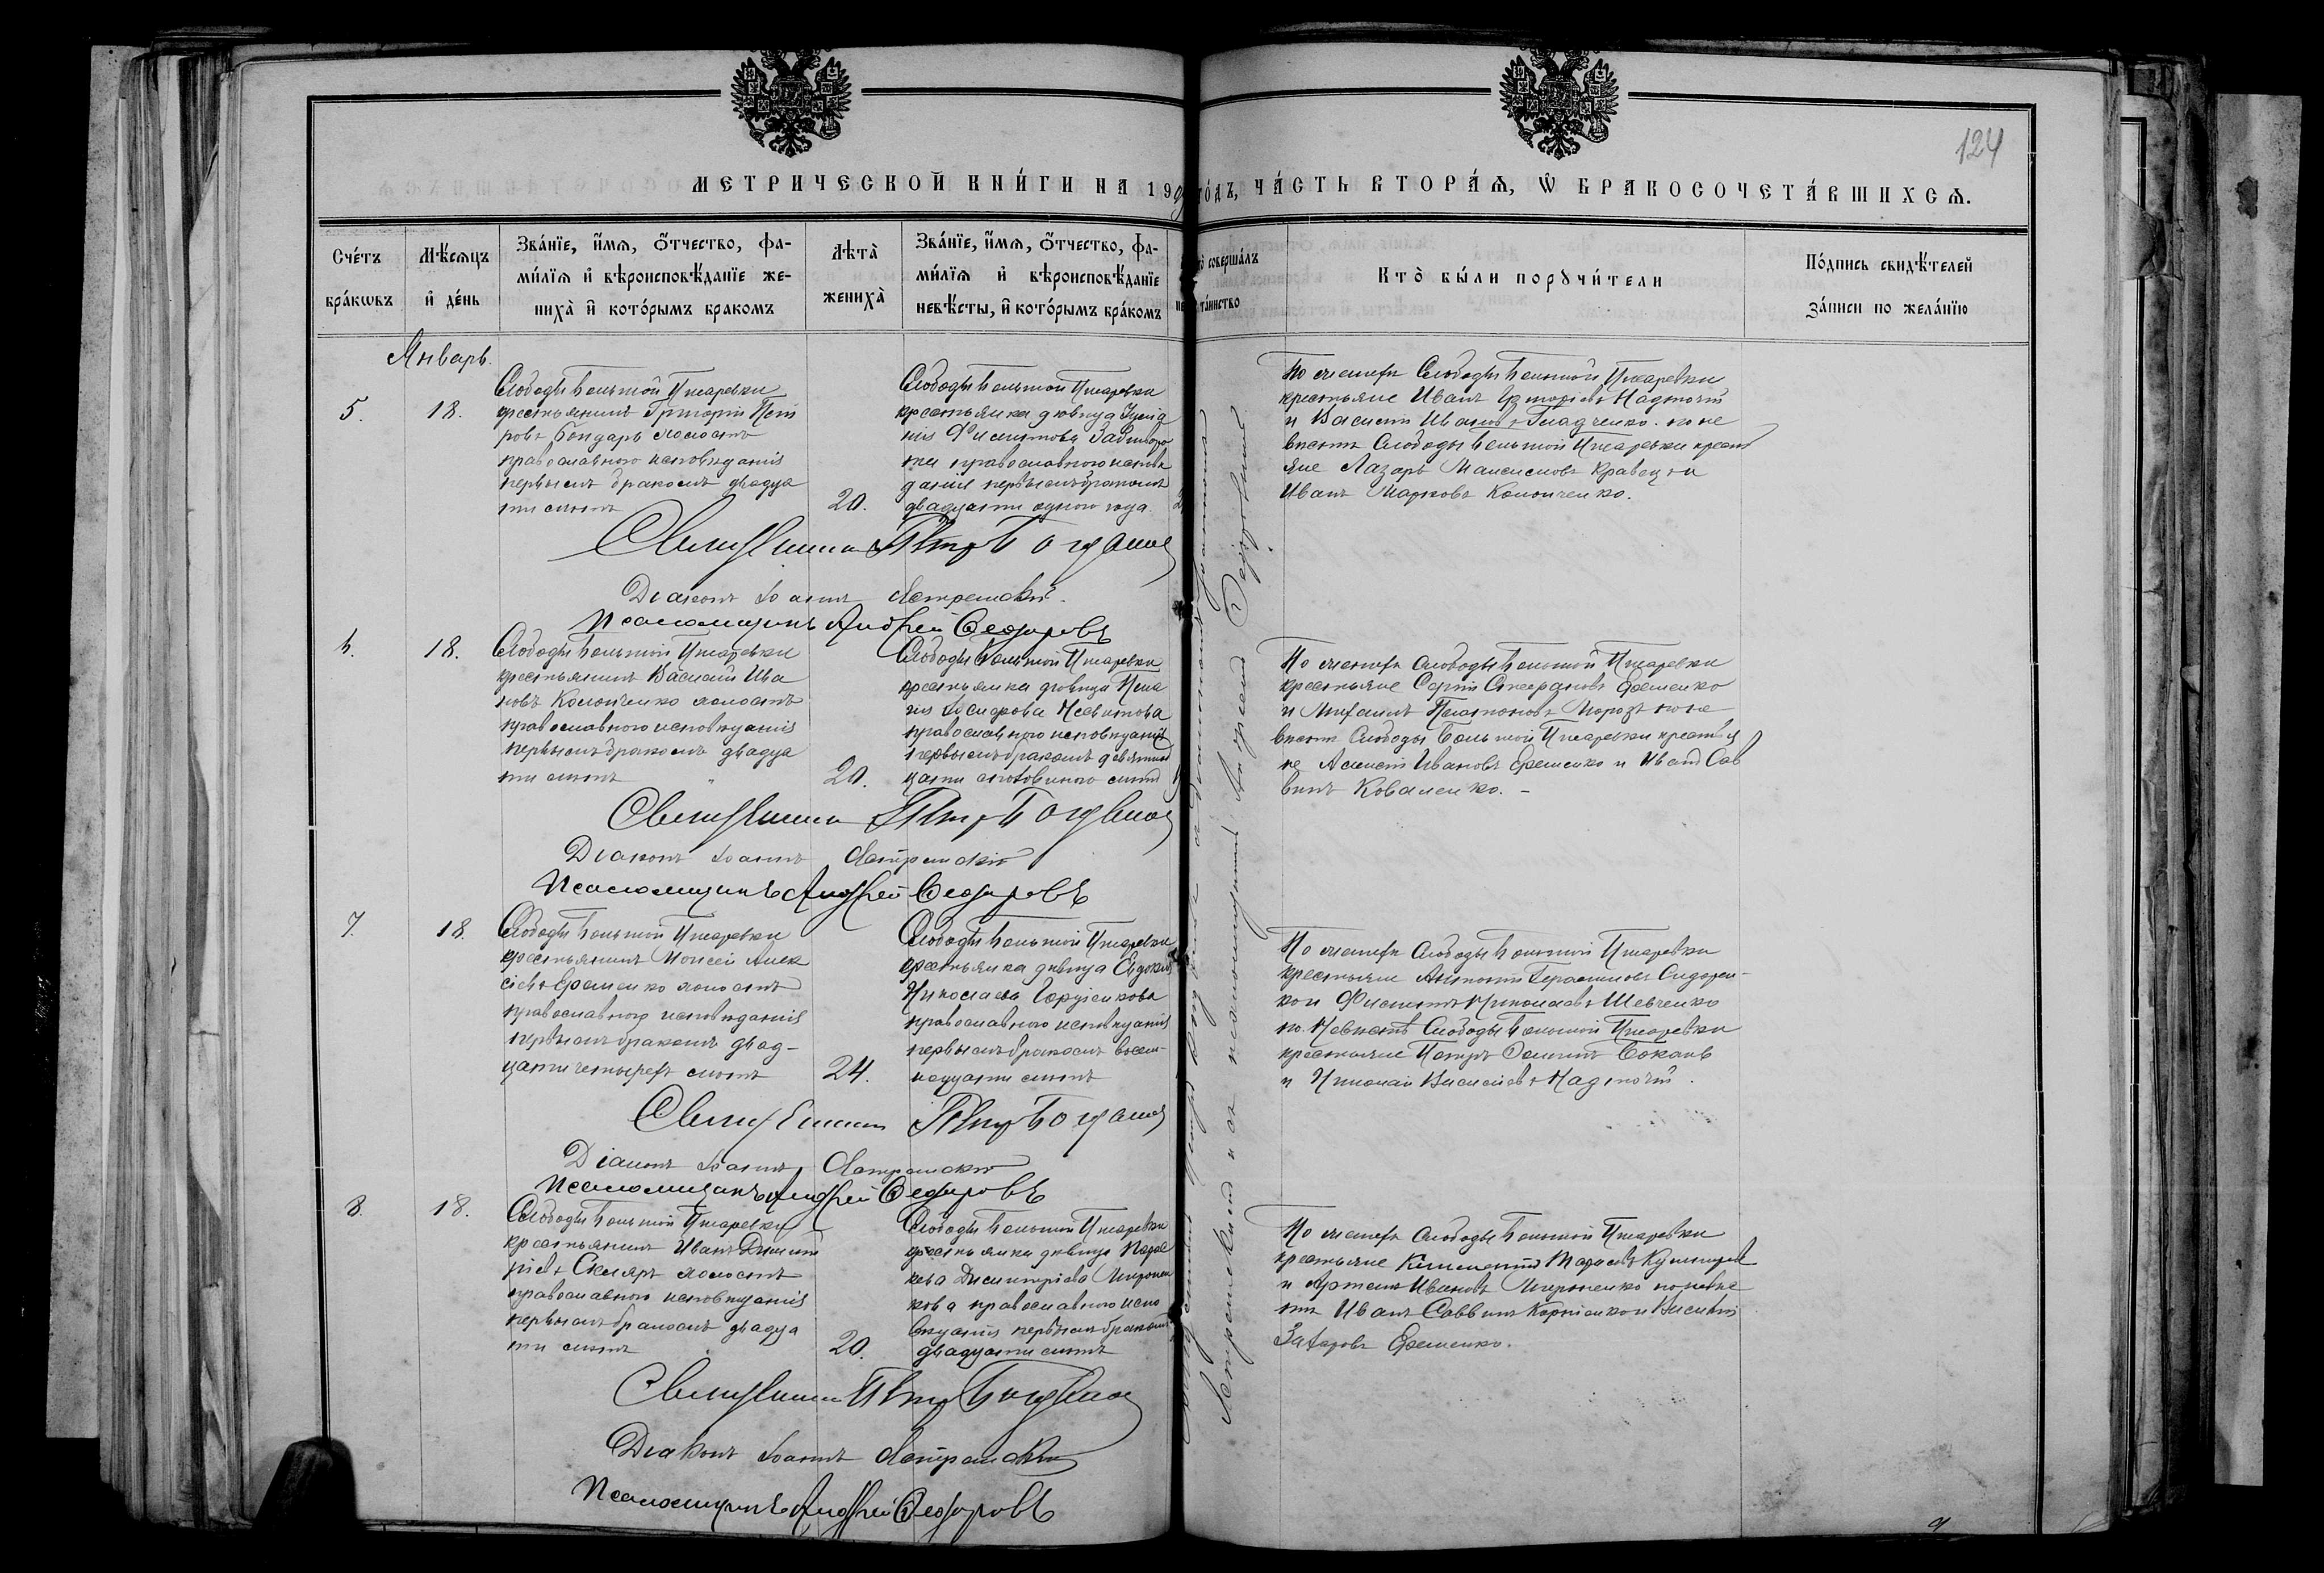 124
МЕТРИЧЕСКОЙ КНИ́ГИ НА 190 ГО́ДЪ, ЧА́СТЬ ВТОРА́Ѧ, Ѡ БРАКОСОЧЕТА́ВШИХСѦ.
Сче́тъ бра́кѡвъ
Мѣ́сѧцъ и҆ де́нь
Зва́нїе, и҆́мѧ, ѻ҆́тчество, фа-
ми́лїѧ и҆ вѣроисповѣ́данїе же-
ниха̀ и҆ кото́рымъ бракомъ
Лѣта̀ жениха̀
Зва́нїе, и҆́мѧ, ѻ҆́тчество, фа-
ми́лїѧ и҆ вѣроисповѣ́данїе
невѣ́сты, и҆ кото́рымъ бра́комъ
совершáлъ
та́инство
Кто̀ бы́ли порꙋчи́тели
По́дпись свидѣ́телей
за́писи по жела́нїю
Январь.
5.
18.
Слободы Большой Писаревки
крестьянинъ Григорій Пет
ровъ Бондарь холостъ
православного исповѣданія
первымъ бракомъ двадца
ти лѣтъ
20.
Слободы Большой Писаревки
крестьянка дѣвица
православного исповѣ
данія первымъ бракомъ
двадцати одного года.
По женихѣ Слободы Большой Писаревки
крестьяне Иванъ Григоріевъ Надточій
и Василій Ивановъ Гладченко. по не
вѣстѣ Слободы Большой Писаревки кресть
яне Лазарь Максимовъ Кравецъ и
Иванъ Марковъ Коломченко.
Священникъ Петръ Богданов
Діаконъ Іоаннъ
Псаломщикъ Андрей Ѳедоровъ
6.
18.
Слободы Большой Писаревки
крестьянинъ Василій Ива
новъ холостъ
православного исповѣданія
первымъ бракомъ двадца
ти лѣтъ
20.
Слободы Большой Писаревки
крестьянка дѣвица Пела
гія
православного исповѣданія
первымъ бракомъ девятнад
цати съ половиною лѣтъ
По женихѣ Слободы Большой Писаревки
крестьяне Сергій Стефановъ Еременко
и Михаилъ Морозъ по не
вѣстѣ Слободы Большой Писаревки крестья
не Алексій Ивановъ Еременко и Иванъ Сав
винъ Коваленко.
Священникъ Петръ Богданов
Діаконъ Іоаннъ
Псаломщикъ Андрей Ѳедоровъ
7.
18.
Слободы Большой Писаревки
крестьянинъ Моисей Алек
сіевъ Еременко холостъ
православного исповѣданія
первымъ бракомъ двад-
цати четырехъ лѣтъ
24.
Слободы Большой Писаревки
крестьянка дѣвица Евдокія
Николаева Гордіенкова
православного исповѣданія
первымъ бракомъ восем-
надцати лѣтъ
По женихѣ Слободы Большой Писаревки
крестьяне Антоній Герасимовъ Сидорен-
ко и Филиппъ Николаевъ Шевченко
по невѣстѣ Слободы Большой Писаревки
крестьяне Петръ
и Николай Василіевъ Надточій.
Священникъ Петръ Богданов
Діаконъ Іоаннъ
Псаломщикъ Андрей Ѳедоровъ
8.
18.
Слободы Большой Писаревки
крестьянинъ Иванъ Димит
ріевъ Скляръ холостъ
православного исповѣданія
первымъ бракомъ двадца
ти лѣтъ
20.
Слободы Большой Писаревки
крестьянка дѣвица Парас
кева Димитріева Миронен
кова православного испо
вѣданія первымъ бракомъ
двадцати лѣтъ
По женихѣ Слободы Большой Писаревки
крестьяне
и Артемъ Ивановъ Мироненко по невѣс
тѣ Иванъ Саввинъ Корніенко и Василій
Захаровъ Еременко.
Священникъ Петръ Богданов
Діаконъ Іоаннъ
Псаломщикъ Андрей Ѳедоровъ